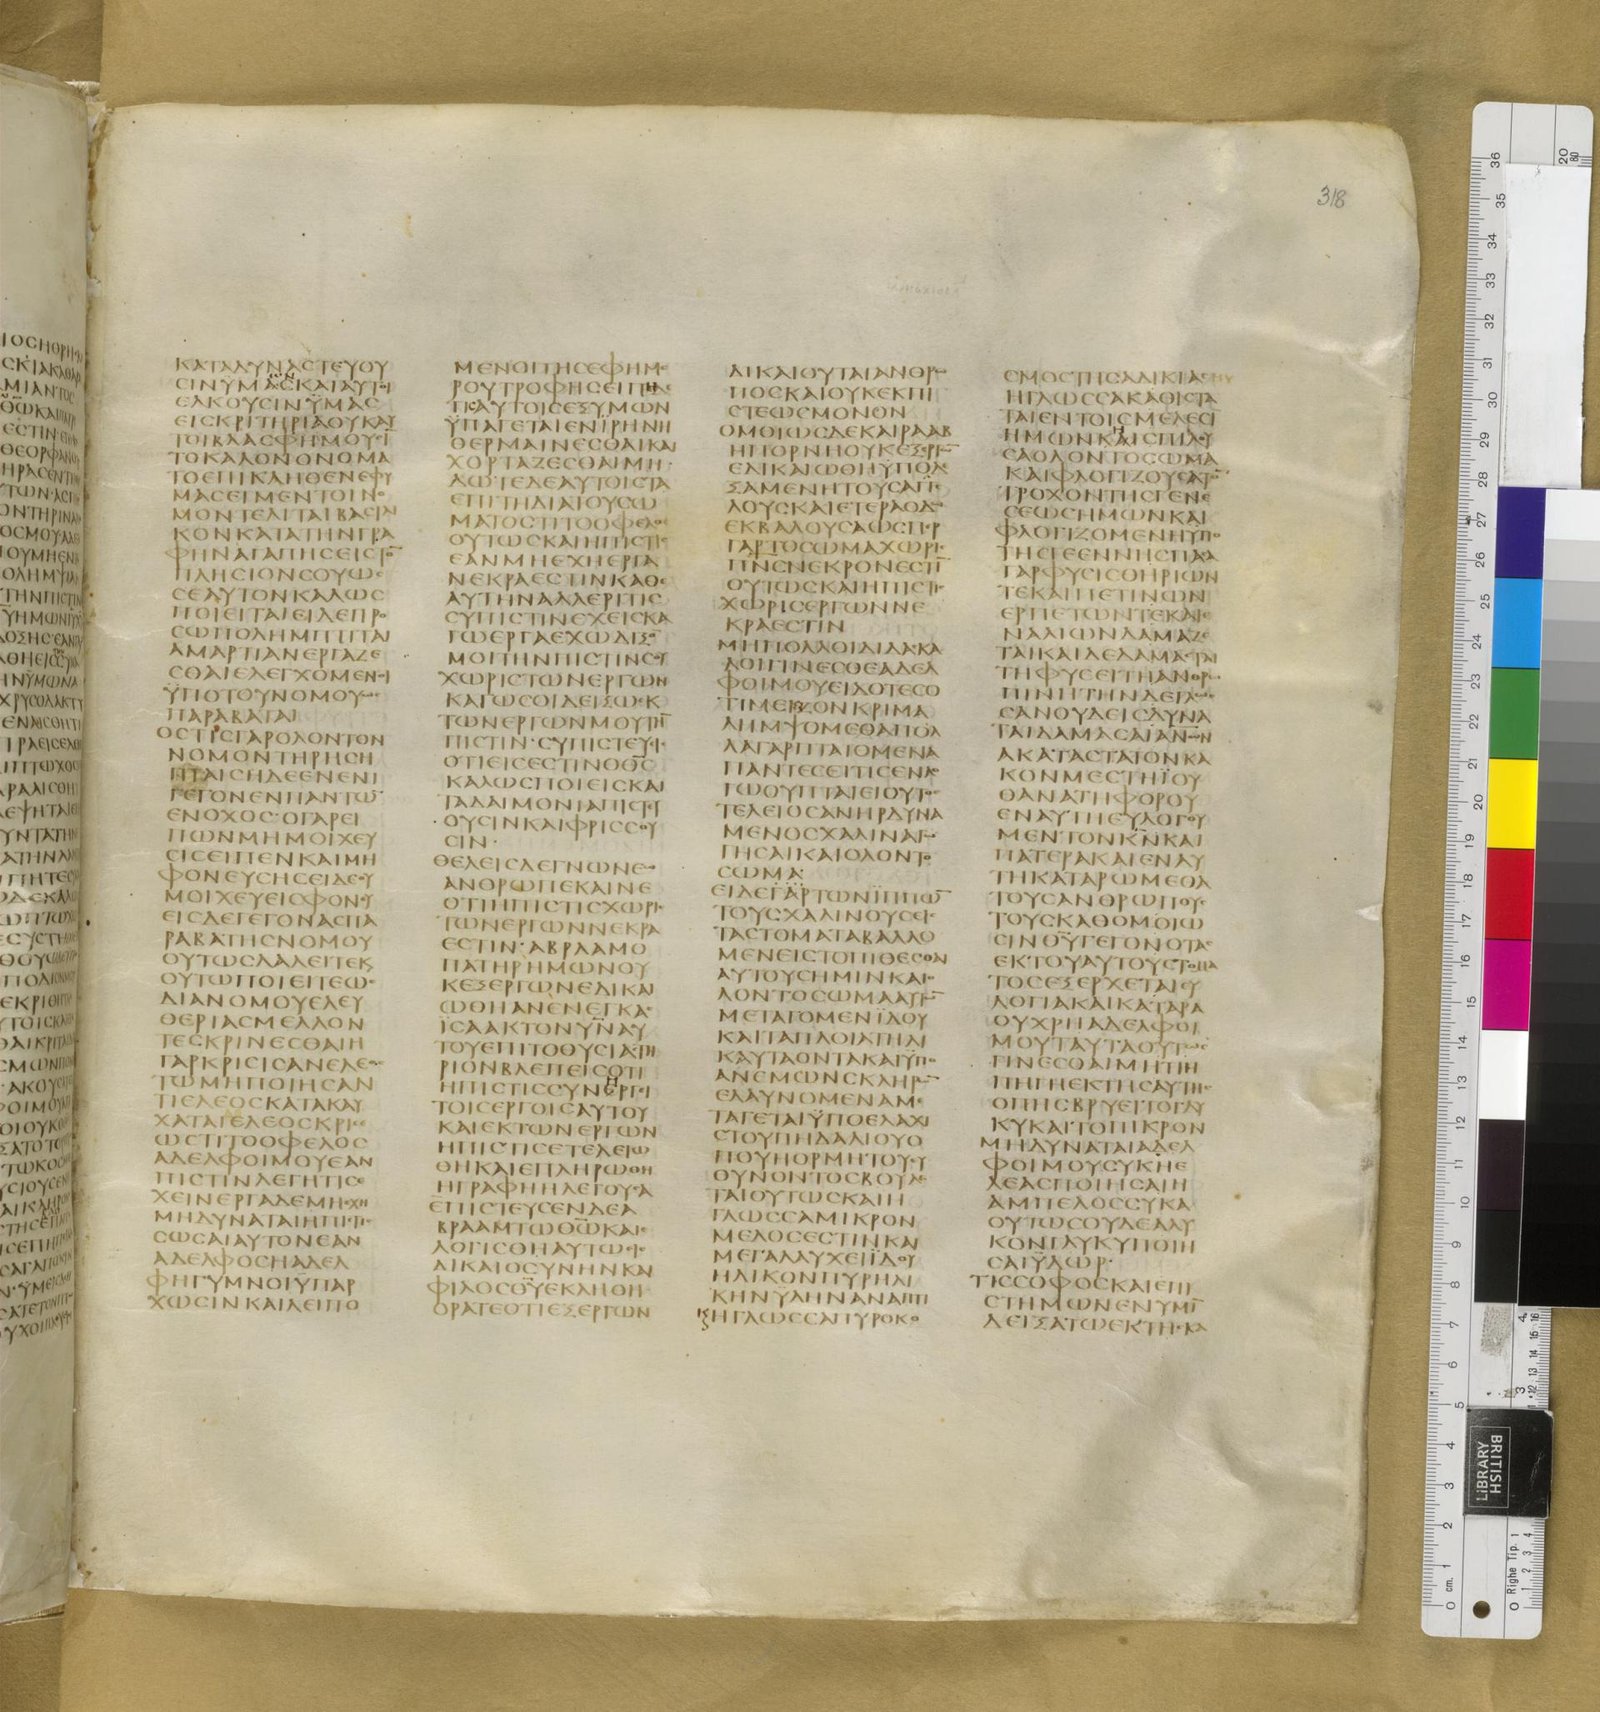 ΚΑΤΑΔΥΝΑϹΤΕΥΟΥ
ϹΙΝΥΜΑϹΚΑΙΑΥΤΟΙ
ΕΛΚΟΥϹΙΝΫΜΑϹ
ΕΙϹΚΡΙΤΗΡΙΑΟΥΚΑΥ
ΤΟΙΒΛΑϹΦΗΜΟΥϹΙ
ΤΟΚΑΛΟΝΟΝΟΜΑ
ΤΟΕΠΙΚΛΗΘΕΝΕΦΥ
ΜΑϹΕΙΜΕΝΤΟΙΝΟ
ΜΟΝΤΕΛΙΤΑΙΒΑϹΙΛΙ
ΚΟΝΚΑΤΑΤΗΝΓΡΑ
ΦΗΝΑΓΑΠΗϹΕΙϹΤΟ̅
ΠΛΗϹΙΟΝϹΟΥΩϹ
ϹΕΑΥΤΟΝΚΑΛΩϹ
ΠΟΙΕΙΤΑΙΕΙΔΕΠΡΟ
ϹΩΠΟΛΗΜΠΤΙΤΑΙ
ΑΜΑΡΤΙΑΝΕΡΓΑΖΕ
ϹΘΑΙΕΛΕΓΧΟΜΕΝΟΙ
ΫΠΟΤΟΥΝΟΜΟΥΩϹ
ΠΑΡΑΒΑΤΑΙ
ΟϹΤΙϹΓΑΡΟΛΟΝΤΟΝ
ΝΟΜΟΝΤΗΡΗϹΗ
ΠΤΑΙϹΗΔΕΕΝΕΝΙ
ΓΕΓΟΝΕΝΠΑΝΤΩ̅
ΕΝΟΧΟϹ·ΟΓΑΡΕΙ
ΠΩΝΜΗΜΟΙΧΕΥ
ϹΙϹΕΙΠΕΝΚΑΙΜΗ
ΦΟΝΕΥϹΗϹΕΙΔΕΟΥ
ΜΟΙΧΕΥΕΙϹΦΟΝΕΥ
ΕΙϹΔΕΓΕΓΟΝΑϹΠΑ
ΡΑΒΑΤΗϹΝΟΜΟΥ
ΟΥΤΩϹΛΑΛΕΙΤΕΚ
ΟΥΤΩΠΟΙΕΙΤΕΩϹ
ΔΙΑΝΟΜΟΥΕΛΕΥ
ΘΕΡΙΑϹΜΕΛΛΟΝ
ΤΕϹΚΡΙΝΕϹΘΑΙΗ
ΓΑΡΚΡΙϹΙϹΑΝΕΛΕΟϹ
ΤΩΜΗΠΟΙΗϹΑΝ
ΤΙΕΛΕΟϹΚΑΤΑΚΑΥ
ΧΑΤΑΙΕΛΕΟϹΚΡΙϹΕ
ΩϹΤΙΤΟΟΦΕΛΟϹ
ΑΔΕΛΦΟΙΜΟΥΕΑΝ
ΠΙϹΤΙΝΛΕΓΗΤΙϹΕ
ΧΕΙΝΕΡΓΑΔΕΜΗΕΧΗ
ΜΗΔΥΝΑΤΑΙΗΠΙϹΤΙϹ
ϹΩϹΑΙΑΥΤΟΝΕΑΝ
ΑΔΕΛΦΟϹΗΑΔΕΛ
ΦΗΓΥΜΝΟΙΫΠΑΡ
ΧΩϹΙΝΚΑΙΛΕΙΠΟ
ΜΕΝΟΙΤΗϹΕΦΗΜΕ
ΡΟΥΤΡΟΦΗϹΕΙΠΗΔΕ
ΤΙϹΑΥΤΟΙϹΕΞΥΜΩΝ
ΫΠΑΓΕΤΑΙΕΝΪΡΗΝΗ
ΘΕΡΜΑΙΝΕϹΘΑΙΚΑΙ
ΧΟΡΤΑΖΕϹΘΑΙΜΗ
ΔΩΤΕΔΕΑΥΤΟΙϹΤΑ
ΕΠΙΤΗΔΙΑΤΟΥϹΩ
ΜΑΤΟϹΤΙΤΟΟΦΕΛΟϹ
ΟΥΤΩϹΚΑΙΗΠΙϹΤΙϹ
ΕΑΝΜΗΕΧΗΕΡΓΑ
ΝΕΚΡΑΕϹΤΙΝΚΑΘΕ
ΑΥΤΗΝΑΛΛΕΡΙΤΙϹ
ϹΥΠΙϹΤΙΝΕΧΕΙϹΚΑ
ΓΩΕΡΓΑΕΧΩΔΙΞΟ̅
ΜΟΙΤΗΝΠΙϹΤΙΝϹΟΥ
ΧΩΡΙϹΤΩΝΕΡΓΩΝ
ΚΑΓΩϹΟΙΔΕΙΞΩΕΚ
ΤΩΝΕΡΓΩΝΜΟΥΤΗ̅
ΠΙϹΤΙΝ·ϹΥΠΙϹΤΕΥΕΙϹ
ΟΤΙΕΙϹΕϹΤΙΝΟΘ̅Ϲ̅
ΚΑΛΩϹΠΟΙΕΙϹΚΑΙ
ΤΑΔΑΙΜΟΝΙΑΠΙϹΤΕΥ
ΟΥϹΙΝΚΑΙΦΡΙϹϹΟΥ
ϹΙΝ·
ΘΕΛΕΙϹΔΕΓΝΩΝΕΩ
ΑΝΘΡΩΠΕΚΑΙΝΕ
ΟΤΙΗΠΙϹΤΙϹΧΩΡΙϹ
ΤΩΝΕΡΓΩΝΝΕΚΡΑ
ΕϹΤΙΝ·ΑΒΡΑΑΜΟ
ΠΑΤΗΡΗΜΩΝΟΥ
ΚΕΞΕΡΓΩΝΕΔΙΚΑΙ
ΩΘΗΑΝΕΝΕΓΚΑϹ
ΪϹΑΑΚΤΟΝΥ̅Ν̅ΑΥ
ΤΟΥΕΠΙΤΟΘΥϹΙΑϹΤΗ
ΡΙΟΝΒΛΕΠΕΙϹΟΤΙ
ΗΠΙϹΤΙϹϹΥΝΕΡΓΕΙ
ΤΟΙϹΕΡΓΟΙϹΑΥΤΟΥ
ΚΑΙΕΚΤΩΝΕΡΓΩΝ
ΗΠΙϹΤΙϹΕΤΕΛΕΙΩ
ΘΗΚΑΙΕΠΛΗΡΩΘΗ
ΗΓΡΑΦΗΗΛΕΓΟΥϹΑ
ΕΠΙϹΤΕΥϹΕΝΔΕΑ
ΒΡΑΑΜΤΩΘ̅Ω̅ΚΑΙΕ
ΛΟΓΙϹΘΗΑΥΤΩΕΙϹ
ΔΙΚΑΙΟϹΥΝΗΝΚΑΙ
ΦΙΛΟϹΘ̅Υ̅ΕΚΛΗΘΗ
ΟΡΑΤΕΟΤΙΕΞΕΡΓΩΝ
ΔΙΚΑΙΟΥΤΑΙΑΝΘΡΩ
ΠΟϹΚΑΙΟΥΚΕΚΠΙ
ϹΤΕΩϹΜΟΝΟΝ
ΟΜΟΙΩϹΔΕΚΑΙΡΑΑΒ
ΗΠΟΡΝΗΟΥΚΕΞΕΡΓΩ̅
ΕΔΙΚΑΙΩΘΗΫΠΟΔΕ
ΞΑΜΕΝΗΤΟΥϹΑΓΓΕ
ΛΟΥϹΚΑΙΕΤΕΡΑΟΔΩ
ΕΚΒΑΛΟΥϹΑΩϹΠΕΡ
ΓΑΡΤΟϹΩΜΑΧΩΡΙϹ
Π̅Ν̅Ϲ̅ΝΕΚΡΟΝΕϹΤΙ̅
ΟΥΤΩϹΚΑΙΗΠΙϹΤΙϹ
ΧΩΡΙϹΕΡΓΩΝΝΕ
ΚΡΑΕϹΤΙΝ
ΜΗΠΟΛΛΟΙΔΙΔΑϹΚΑ
ΛΟΙΓΙΝΕϹΘΕΑΔΕΛ
ΦΟΙΜΟΥΕΙΔΟΤΕϹΟ
ΤΙΜΕΙΖΟΝΚΡΙΜΑ
ΛΗΜΨΟΜΕΘΑΠΟΛ
ΛΑΓΑΡΠΤΑΙΟΜΕΝΑ
ΠΑΝΤΕϹΕΙΤΙϹΕΝΛΟ
ΓΩΟΥΠΤΑΙΕΙΟΥΤΟϹ
ΤΕΛΕΙΟϹΑΝΗΡΔΥΝΑ
ΜΕΝΟϹΧΑΛΙΝΑΓΩ
ΓΗϹΑΙΚΑΙΟΛΟΝΤΟ
ϹΩΜΑ
ΕΙΔΕΓΑΡΤΩΝΪΠΠΩ̅
ΤΟΥϹΧΑΛΙΝΟΥϹΕΙϹ
ΤΑϹΤΟΜΑΤΑΒΑΛΛΟ
ΜΕΝΕΙϹΤΟΠΙΘΕϹΘΑΙ
ΑΥΤΟΥϹΗΜΙΝΚΑΙΟ
ΛΟΝΤΟϹΩΜΑΑΥΤΩ̅
ΜΕΤΑΓΟΜΕΝΪΔΟΥ
ΚΑΙΤΑΠΛΟΙΑΤΗΛΙ
ΚΑΥΤΑΟΝΤΑΚΑΙΫΠΟ
ΑΝΕΜΩΝϹΚΛΗΡΩ̅
ΕΛΑΥΝΟΜΕΝΑΜΕ
ΤΑΓΕΤΑΙΫΠΟΕΛΑΧΙ
ϹΤΟΥΠΗΔΑΛΙΟΥΟ
ΠΟΥΗΟΡΜΗΤΟΥΕΥ
ΘΥΝΟΝΤΟϹΒΟΥΛΕ
ΤΑΙΟΥΤΩϹΚΑΙΗ
ΓΛΩϹϹΑΜΙΚΡΟΝ
ΜΕΛΟϹΕϹΤΙΝΚΑΙ
ΜΕΓΑΛΑΥΧΕΙΪΔΟΥ
ΗΛΙΚΟΝΠΥΡΗΛΙ
ΚΗΝΥΛΗΝΑΝΑΠΤΙ
ΗΓΛΩϹϹΑΠΥΡΟΚΟ
ϹΜΟϹΤΗϹΑΔΙΚΙΑϹ
ΗΓΛΩϹϹΑΚΑΘΙϹΤΑ
ΤΑΙΕΝΤΟΙϹΜΕΛΕϹΙ
ΗΜΩΝΚΑΙϹΠΙΛΟΥ
ϹΑΟΛΟΝΤΟϹΩΜΑ
ΚΑΙΦΛΟΓΙΖΟΥϹΑΤΟ̅
ΤΡΟΧΟΝΤΗϹΓΕΝΕ
ϹΕΩϹΗΜΩΝΚΑΙ
ΦΛΟΓΙΖΟΜΕΝΗΫΠΟ
ΤΗϹΓΕΕΝΝΗϹΠΑϹΑ
ΓΑΡΦΥϹΙϹΘΗΡΙΩΝ
ΤΕΚΑΙΠΕΤΙΝΩΝ
ΕΡΠΕΤΩΝΤΕΚΑΙΕ
ΝΑΛΙΩΝΔΑΜΑΖΕ
ΤΑΙΚΑΙΔΕΔΑΜΑϹΤΑΙ
ΤΗΦΥϹΕΙΤΗΑΝΘΡΩ
ΠΙΝΗΤΗΝΔΕΓΛΩϹ
ϹΑΝΟΥΔΕΙϹΔΥΝΑ
ΤΑΙΔΑΜΑϹΑΙΑΝΘΩΝ
ΑΚΑΤΑϹΤΑΤΟΝΚΑ
ΚΟΝΜΕϹΤΗΪΟΥ
ΘΑΝΑΤΗΦΟΡΟΥ
ΕΝΑΥΤΗΕΥΛΟΓΟΥ
ΜΕΝΤΟΝΚ̅Ν̅ΚΑΙ
ΠΑΤΕΡΑΚΑΙΕΝΑΥ
ΤΗΚΑΤΑΡΩΜΕΘΑ
ΤΟΥϹΑΝΘΡΩΠΟΥϹ
ΤΟΥϹΚΑΘΟΜΟΙΩ
ϹΙΝΘ̅Υ̅ΓΕΓΟΝΟΤΑϹ
ΕΚΤΟΥΑΥΤΟΥϹΤΟΜΑ
ΤΟϹΕΞΕΡΧΕΤΑΙΕΥ
ΛΟΓΙΑΚΑΙΚΑΤΑΡΑ
ΟΥΧΡΗΑΔΕΛΦΟΙ
ΜΟΥΤΑΥΤΑΟΥΤΩϹ
ΓΙΝΕϹΘΑΙΜΗΤΙΗ
ΠΗΓΗΕΚΤΗϹΑΥΤΗϹ
ΟΠΗϹΒΡΥΕΙΤΟΓΛΥ
ΚΥΚΑΙΤΟΠΙΚΡΟΝ
ΜΗΔΥΝΑΤΑΙΑΔΕΛ
ΦΟΙΜΟΥϹΥΚΗΕ
ΛΕΑϹΠΟΙΗϹΑΙΗ
ΑΜΠΕΛΟϹϹΥΚΑ
ΟΥΤΩϹΟΥΔΕΑΛΥ
ΚΟΝΓΛΥΚΥΠΟΙΗ
ϹΑΙΫΔΩΡ·
ΤΙϹϹΟΦΟϹΚΑΙΕΠΙ
ϹΤΗΜΩΝΕΝΥΜΙ̅
ΔΕΙΞΑΤΩΕΚΤΗϹΚΑ
318
BRITISH
LIBRARY